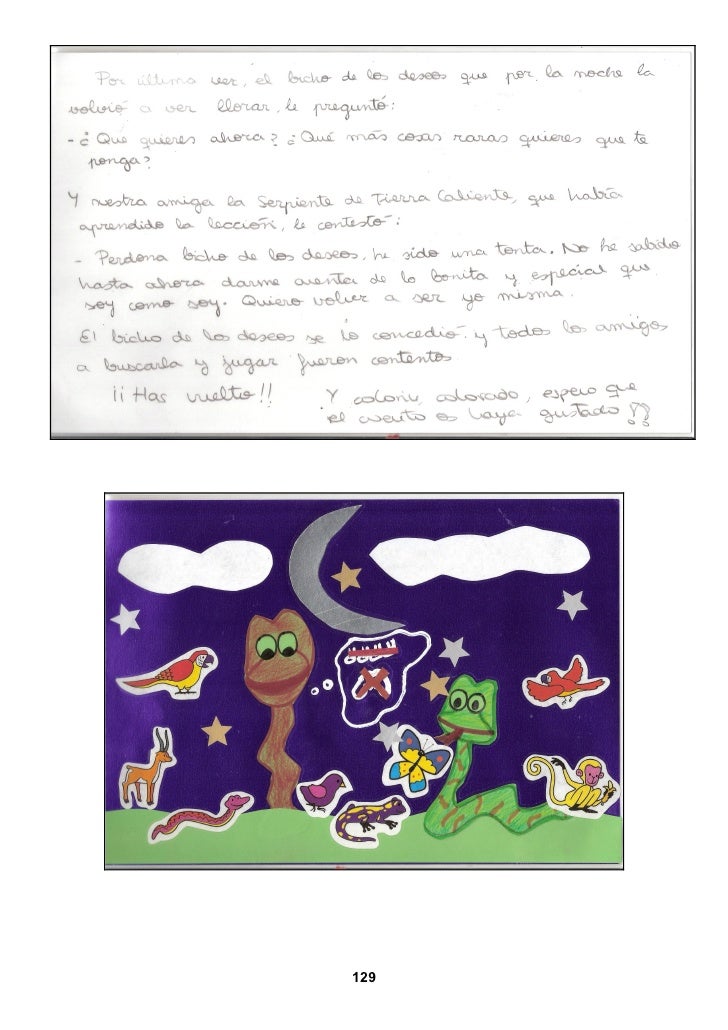 Por última vez, el bicho de los deseos que por la noche la
volvió a ver llorar, le preguntó:
- ¿Qué quieres ahora? ¿Qué más cosas raras quieres que te
ponga?
Y nuestra amiga la Serpiente de Tierra Caliente, que había
aprendido la lección, le contestó:
- Perdona bicho de los deseos, he sido una tonta. No he sabido
hasta ahora darme cuenta de lo bonita y especial que
soy como soy. Quiero volver a ser yo misma.
El bicho de los deseos se lo concedió y todos los amigos
a buscarla y jugar fueron contentos
¡¡Has vuelto!! Y colorín, colorado, espero que
el cuento os haya gustado!!
129